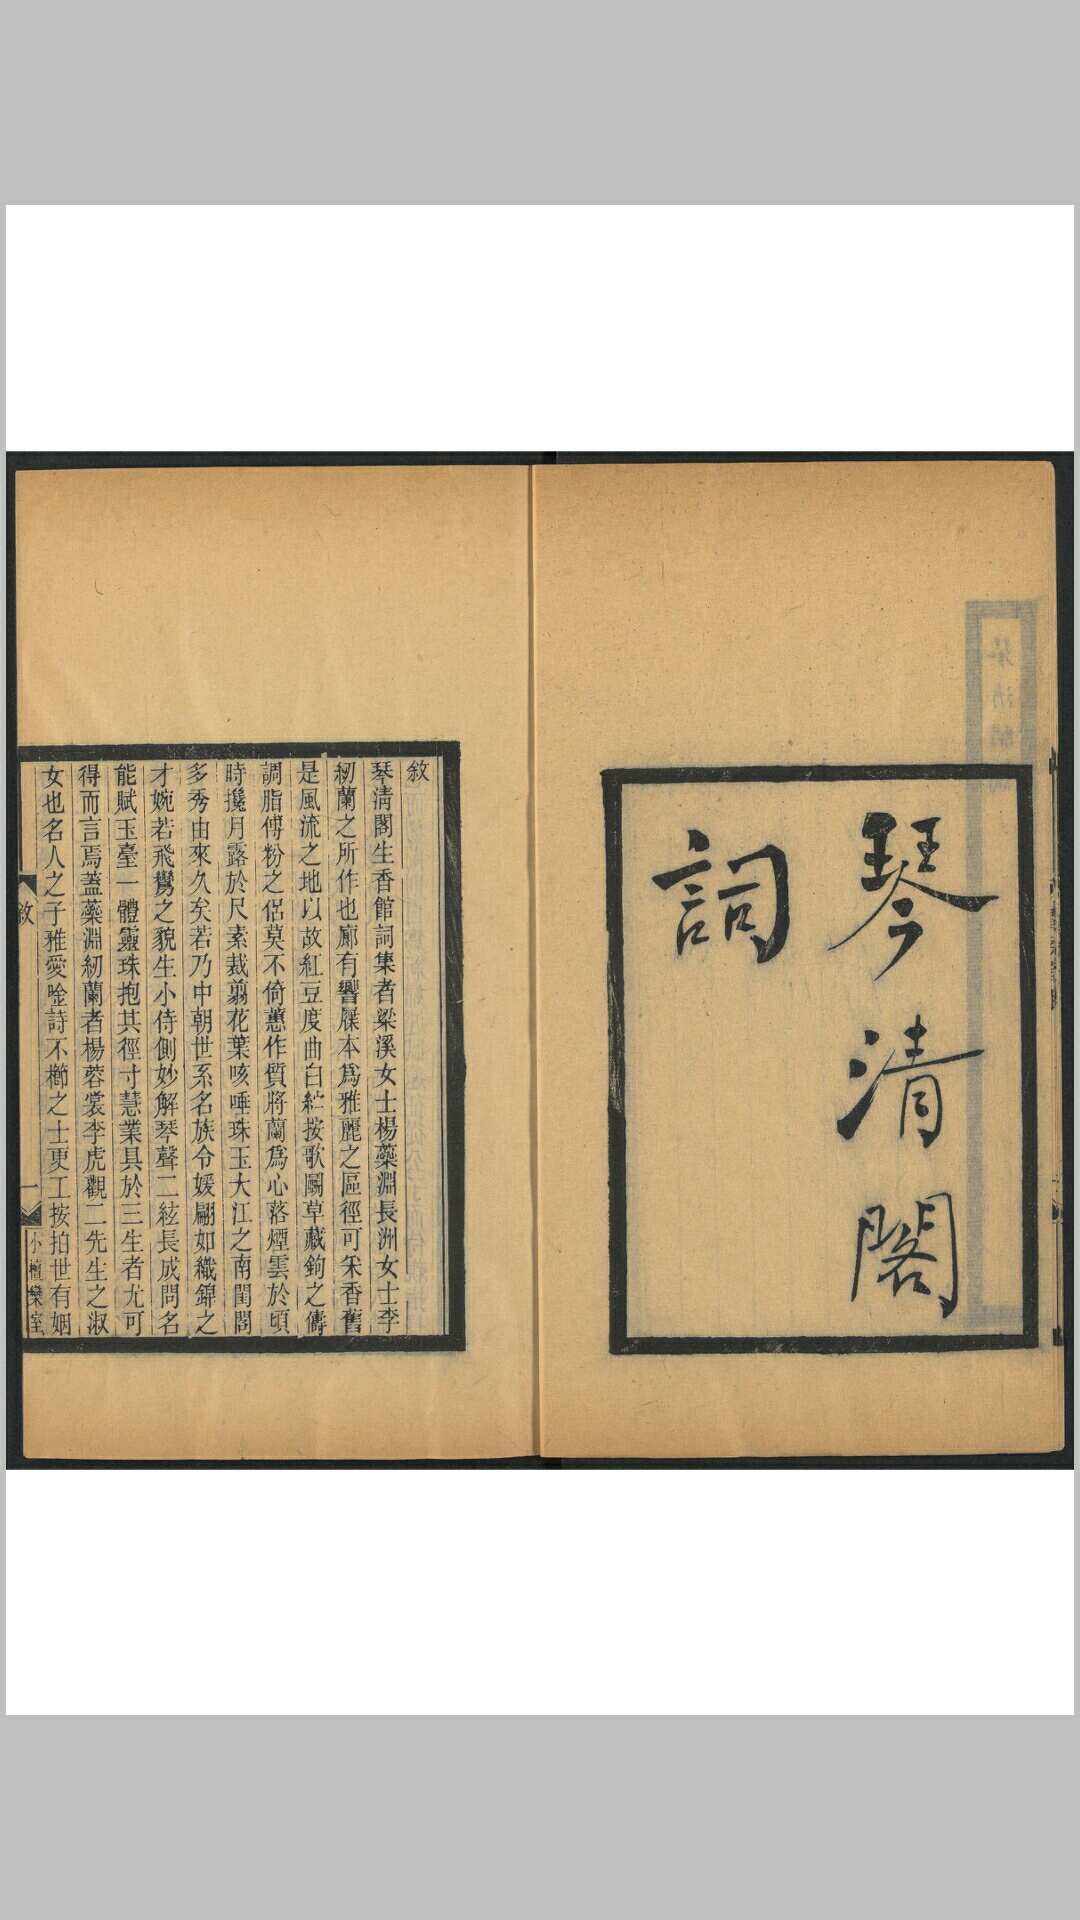 琴清閣
詞
敘
琴清閣生香館詞集者梁溪女士楊蘂淵長洲女士李
紉蘭之所作也廊有響屧本爲雅麗之區徑可采香舊
是風流之地以故紅豆度曲白紵按歌鬭草藏鉤之儔
調脂傅粉之侶莫不倚蕙作質將蘭爲心落煙雲於頃
時攙月露於尺素裁翦花葉咳唾珠玉大江之南閨閣
多秀由來久矣若乃中朝世系名族令媛翩如織錦之
才婉若飛鸞之貌生小侍側妙解琴聲二絃長成問名
能賦玉臺一體靈珠抱其徑寸慧業具於三生者尤可
得而言焉蓋蘂淵紉蘭者楊蓉裳李虎觀二先生之淑
女也名人之子雅愛唫詩不櫛之士更工按拍世有姻
敘
一
小檀欒室